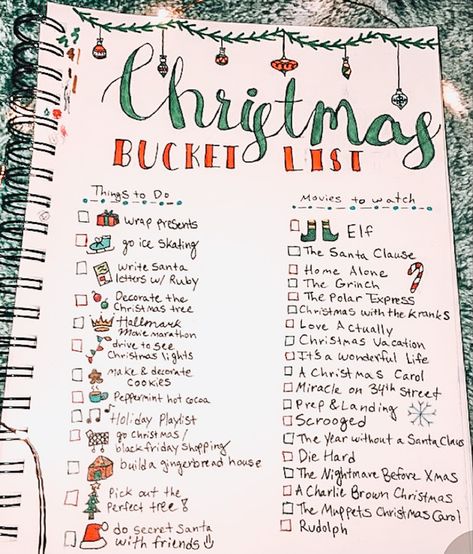 Christmas
BUCKET LIST
Things to Do
wrap presents
go ice skating
write Santa
letters w/ Ruby
Decorate the
Christmas tree
Hallmark
Movie marathon
drive to see
Christmas lights
make & decorate
cookies
Peppermint hot cocoa
Holiday Playlist
go Christmas/
black friday shopping
build a gingerbread house
Pick out the
Perfect tree!
do secret Santa
with friends
Movies to watch
Elf
The Santa Clause
Home Alone
The Grinch
The Polar Express
Christmas with the Kranks
Love Actually
Christmas Vacation
It's a wonderful Life
A Christmas Carol
Miracle on 34th street
Prep & Landing
Scrooged
The Year without a Santa Claus
Die Hard
The Nightmare Before Xmas
A Charlie Brown Christmas
The Muppets Christmas Carol
Rudolph